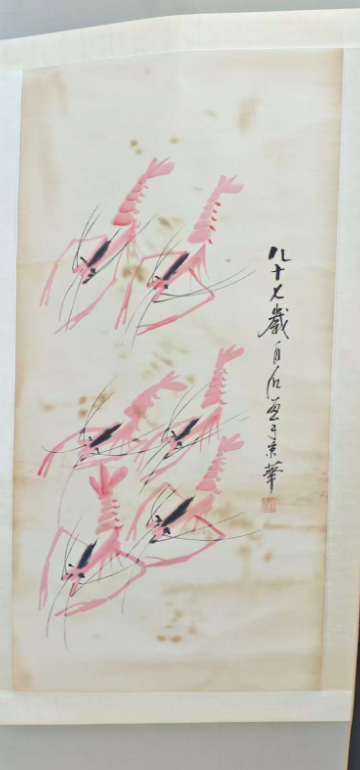 九十七歲白石畫于京華